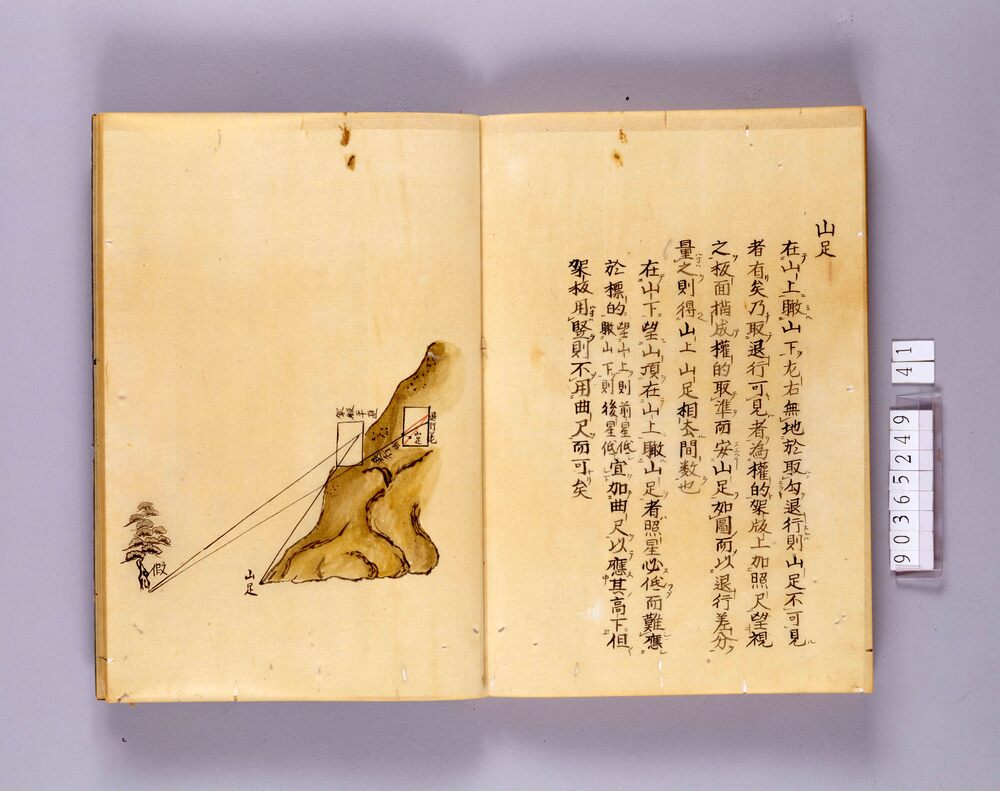 山足
在山上瞰山下左右無地於取勾退行則山足不可見
者有矣乃取退行可見者為權的架版上加照尺望視
之板面揩成權的取準而安山足如圖而以退行差分
量之則得山上山足相去間数也
在山下望山頂在山上瞰山足者照星必低而難應
於標的望山上則前星低瞰山下則後星低宜加曲尺以應其高下但
架板用竪則不用曲尺而可矣
山足
假
山足
90365249
41